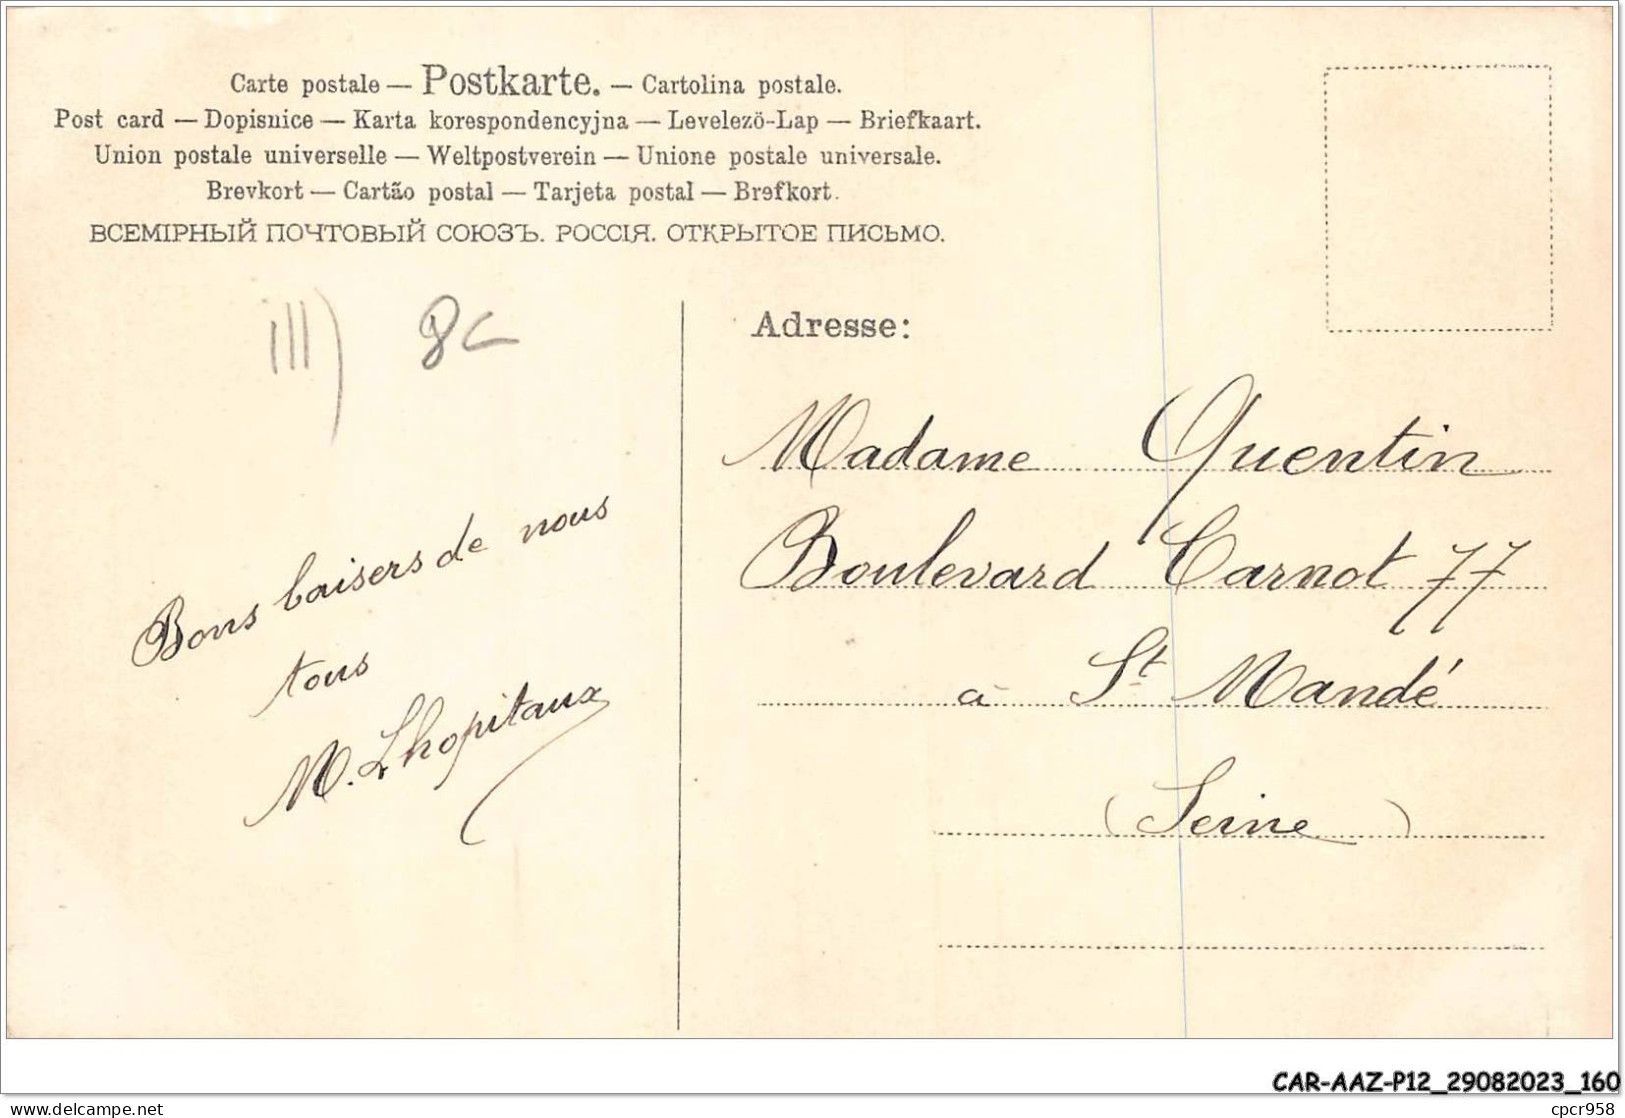 Carte postale — Postkarte. — Cartolina postale.
Post card — Dopisnice — Karta korespondencyjna — Levelezö-Lap — Briefkaart.
Union postale universelle — Weltpostverein — Unione postale universale.
Brevkort — Cartão postal — Tarjeta postal — Brefkort.
ВСЕМІРНЫЙ ПОЧТОВЫЙ СОЮЗЪ. РОССІЯ. ОТКРЫТОЕ ПИСЬМО.
Bons baisers de nous
tous
M. Lhopitaux
Adresse:
Madame Quentin
Boulevard Carnot 77
à St Mandé
(Seine)
CAR-AAZ-P12_29082023_160
cpcr958